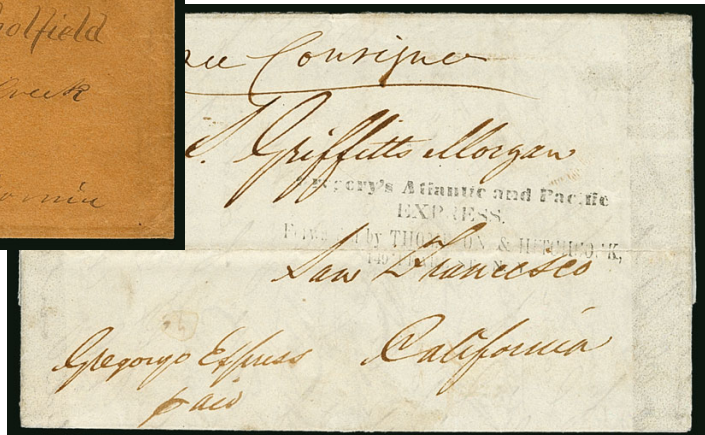 olfield
reek
ornia
ee Consignee
S. Griffitts Morgan
Gregory's Atlantic and Pacific
EXPRESS.
Forwarded by THOMPSON & HITCHCOCK,
San Francisco
California
Gregorys Express
paid